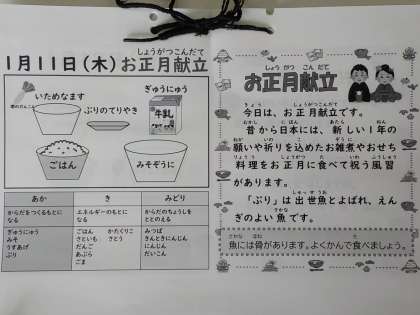 しょうがつこんだて
1月11日(木)お正月献立
いためなます
ぶりのてりやき
ぎゅうにゅう
牛乳
ごはん
みそぞうに
あか
き
みどり
からだをつくるもとになる
エネルギーのもとになる
からだのちょうしをととのえる
ぎゅうにゅう
みそ
うすあげ
ぶり
ごはん かたくりこ
さといも さとう
だんご
あぶら
ごま
みつば
きんときにんじん
にんじん
だいこん
しょうがつ こんだて
お正月献立
きょう しょうがつこんだて
今日は、お正月献立です。
むかし にほん あたら ねん
昔から日本には、新しい1年の
ねが いの こ ぞうに
願いや祈りを込めたお雑煮やおせち
りょうり しょうがつ た いわ ふうしゅう
料理をお正月に食べて祝う風習
があります。
しゅっせうお
「ぶり」は出世魚とよばれ、えん
さかな
ぎのよい魚です。
さかな ほね た
魚には骨があります。よくかんで食べましょう。